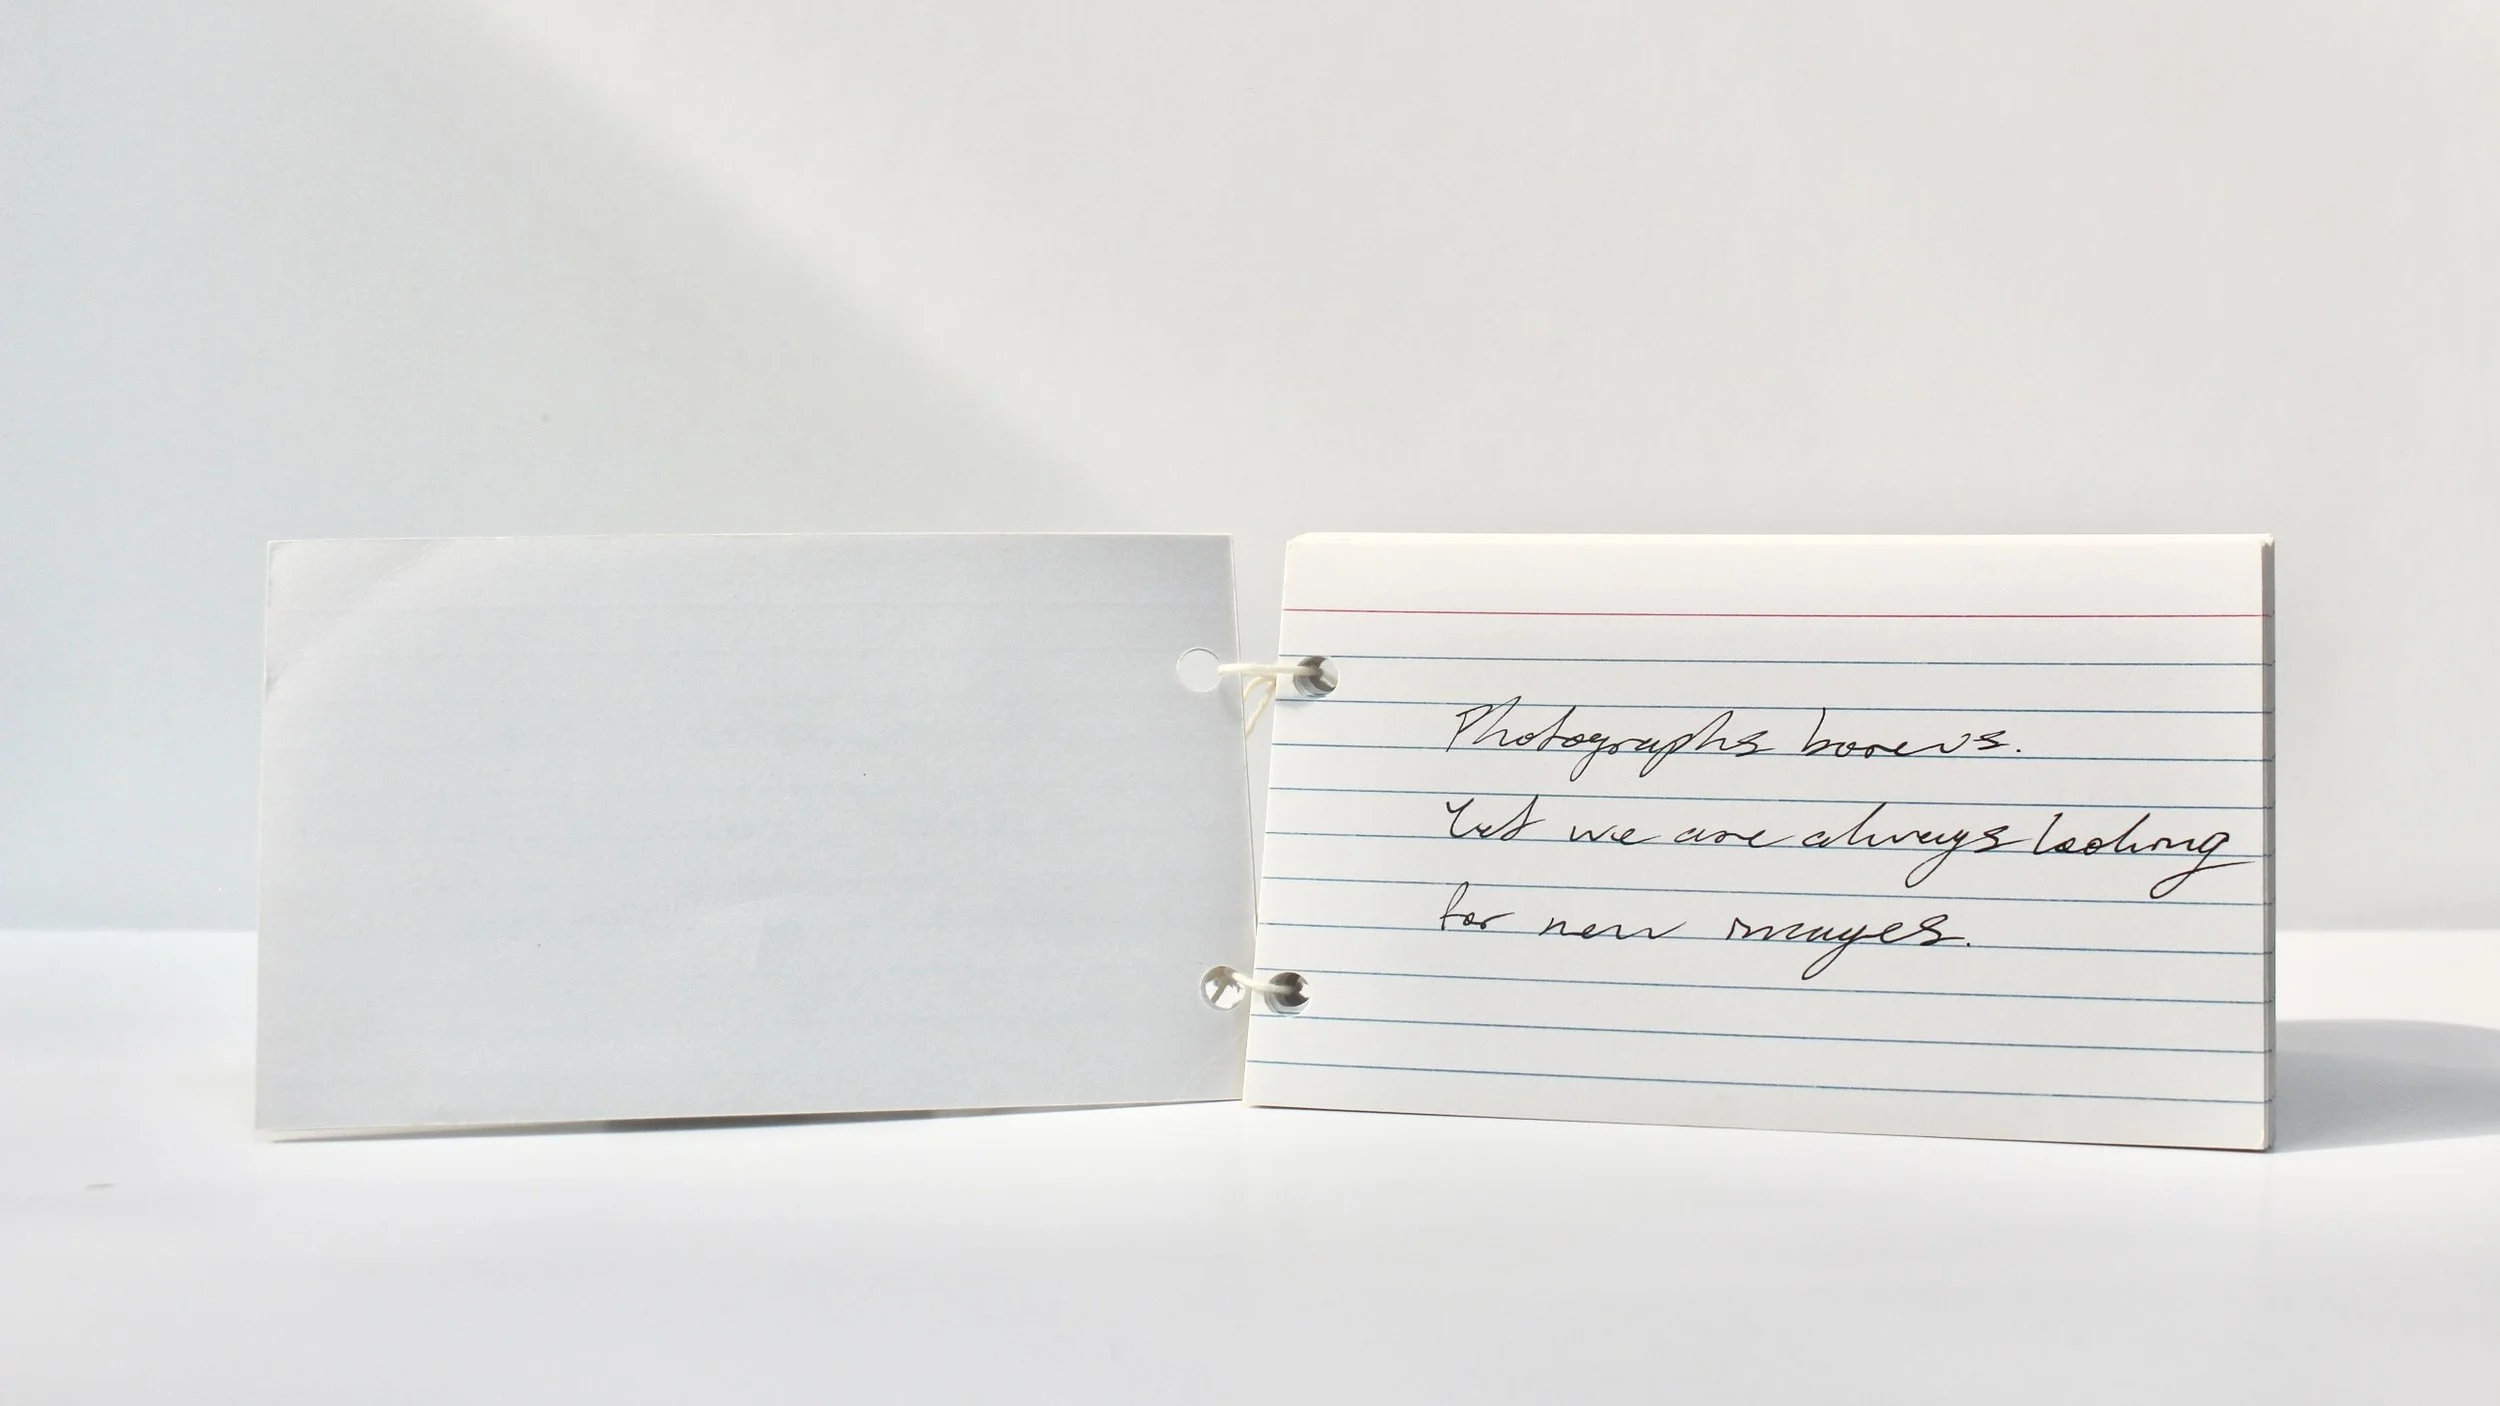 Photographs bore us.
Yet we are always looking
for new images.